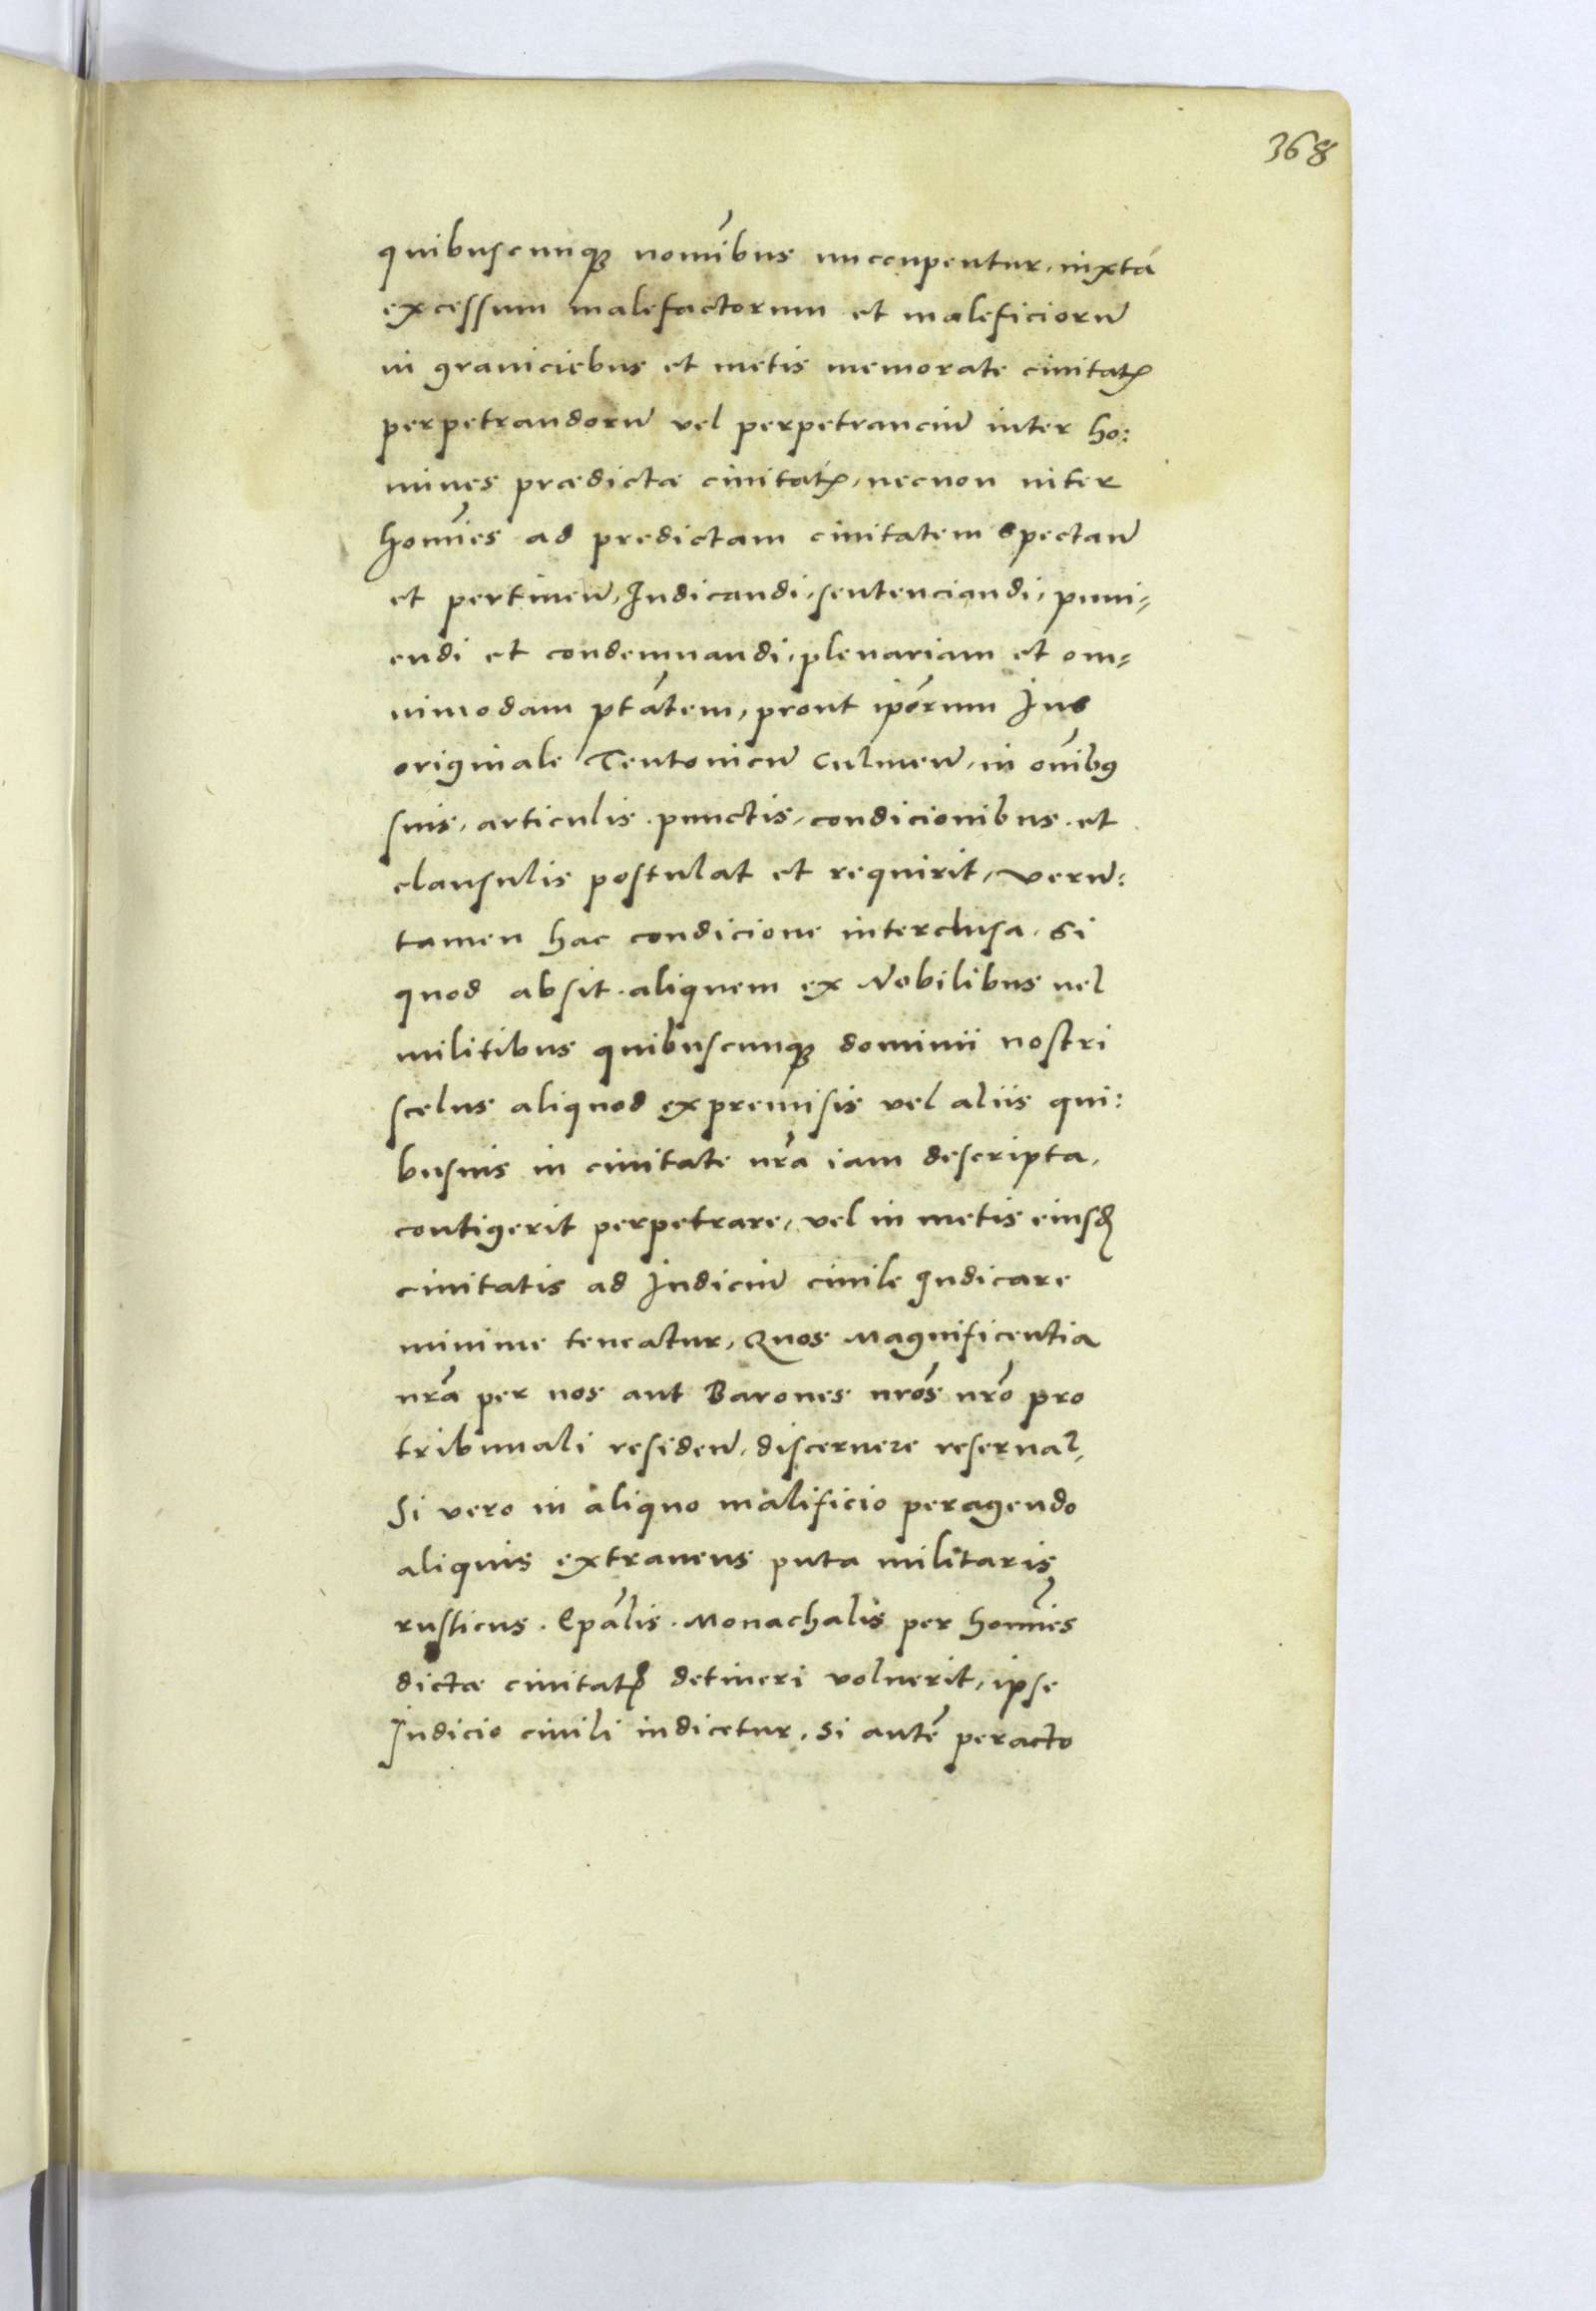 368
quibuscunqȝ nomĩbus nuncupentur, iuxta
excessum malefactorum et maleficiorũ
in graniciebus et metis memorate ciuitatꝭ
perpetrandorũ vel perpetranciũ inter ho:
mines prædictæ ciuitatꝭ, necnon inter
homĩes ad predictam ciuitatem spectañ
et pertineñ, Iudicandi, sentenciandi, puni=
endi et condemnandi, plenariam et om=
nimodam ptãtem, prout ipõrum Ius
originale Teutonicũ Culmeñ, in oĩbꝯ
suis, articulis. punctis, condicionibus. et
clausulis postulat et requirit, verũ:
tamen hac condicione interclusa. Si
quod absit. aliquem ex Nobilibus uel
militibus quibuscunqȝ dominii nostri
scelus aliquod ex premisis vel aliis qui:
busuis in ciuitate nr̃a iam descripta,
contigerit perpetrare, vel in metis eiusđ
ciuitatis ad Iudiciũ ciuile Iudicare
minime teneatur, Quos Magnificentia
nr̃a per nos aut Barones nr̃os nr̃o pro
tribunali resideñ, discernere reseruat,
Si vero in aliquo malificio peragendo
aliquis extraneus puta militaris,
rusticus. Ep̃alis. Monachalis per homĩes
dictæ ciuitatꝭ detineri voluerit, ipse
Iudicio ciuili iudicetur. Si autẽ peracto